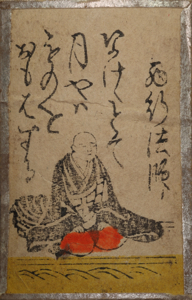 西行法師
なけゝとて
月やハ
ものを
おもハする